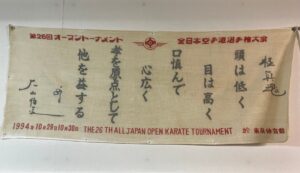 第26回オープントーナメント
全日本空手道選手権大会
極真魂
頭は低く
目は高く
口慎んで
心広く
孝を原点として
他を益する
1994年10月29日10月30日
THE 26TH ALL JAPAN OPEN KARATE TOURNAMENT
於 東京体育館